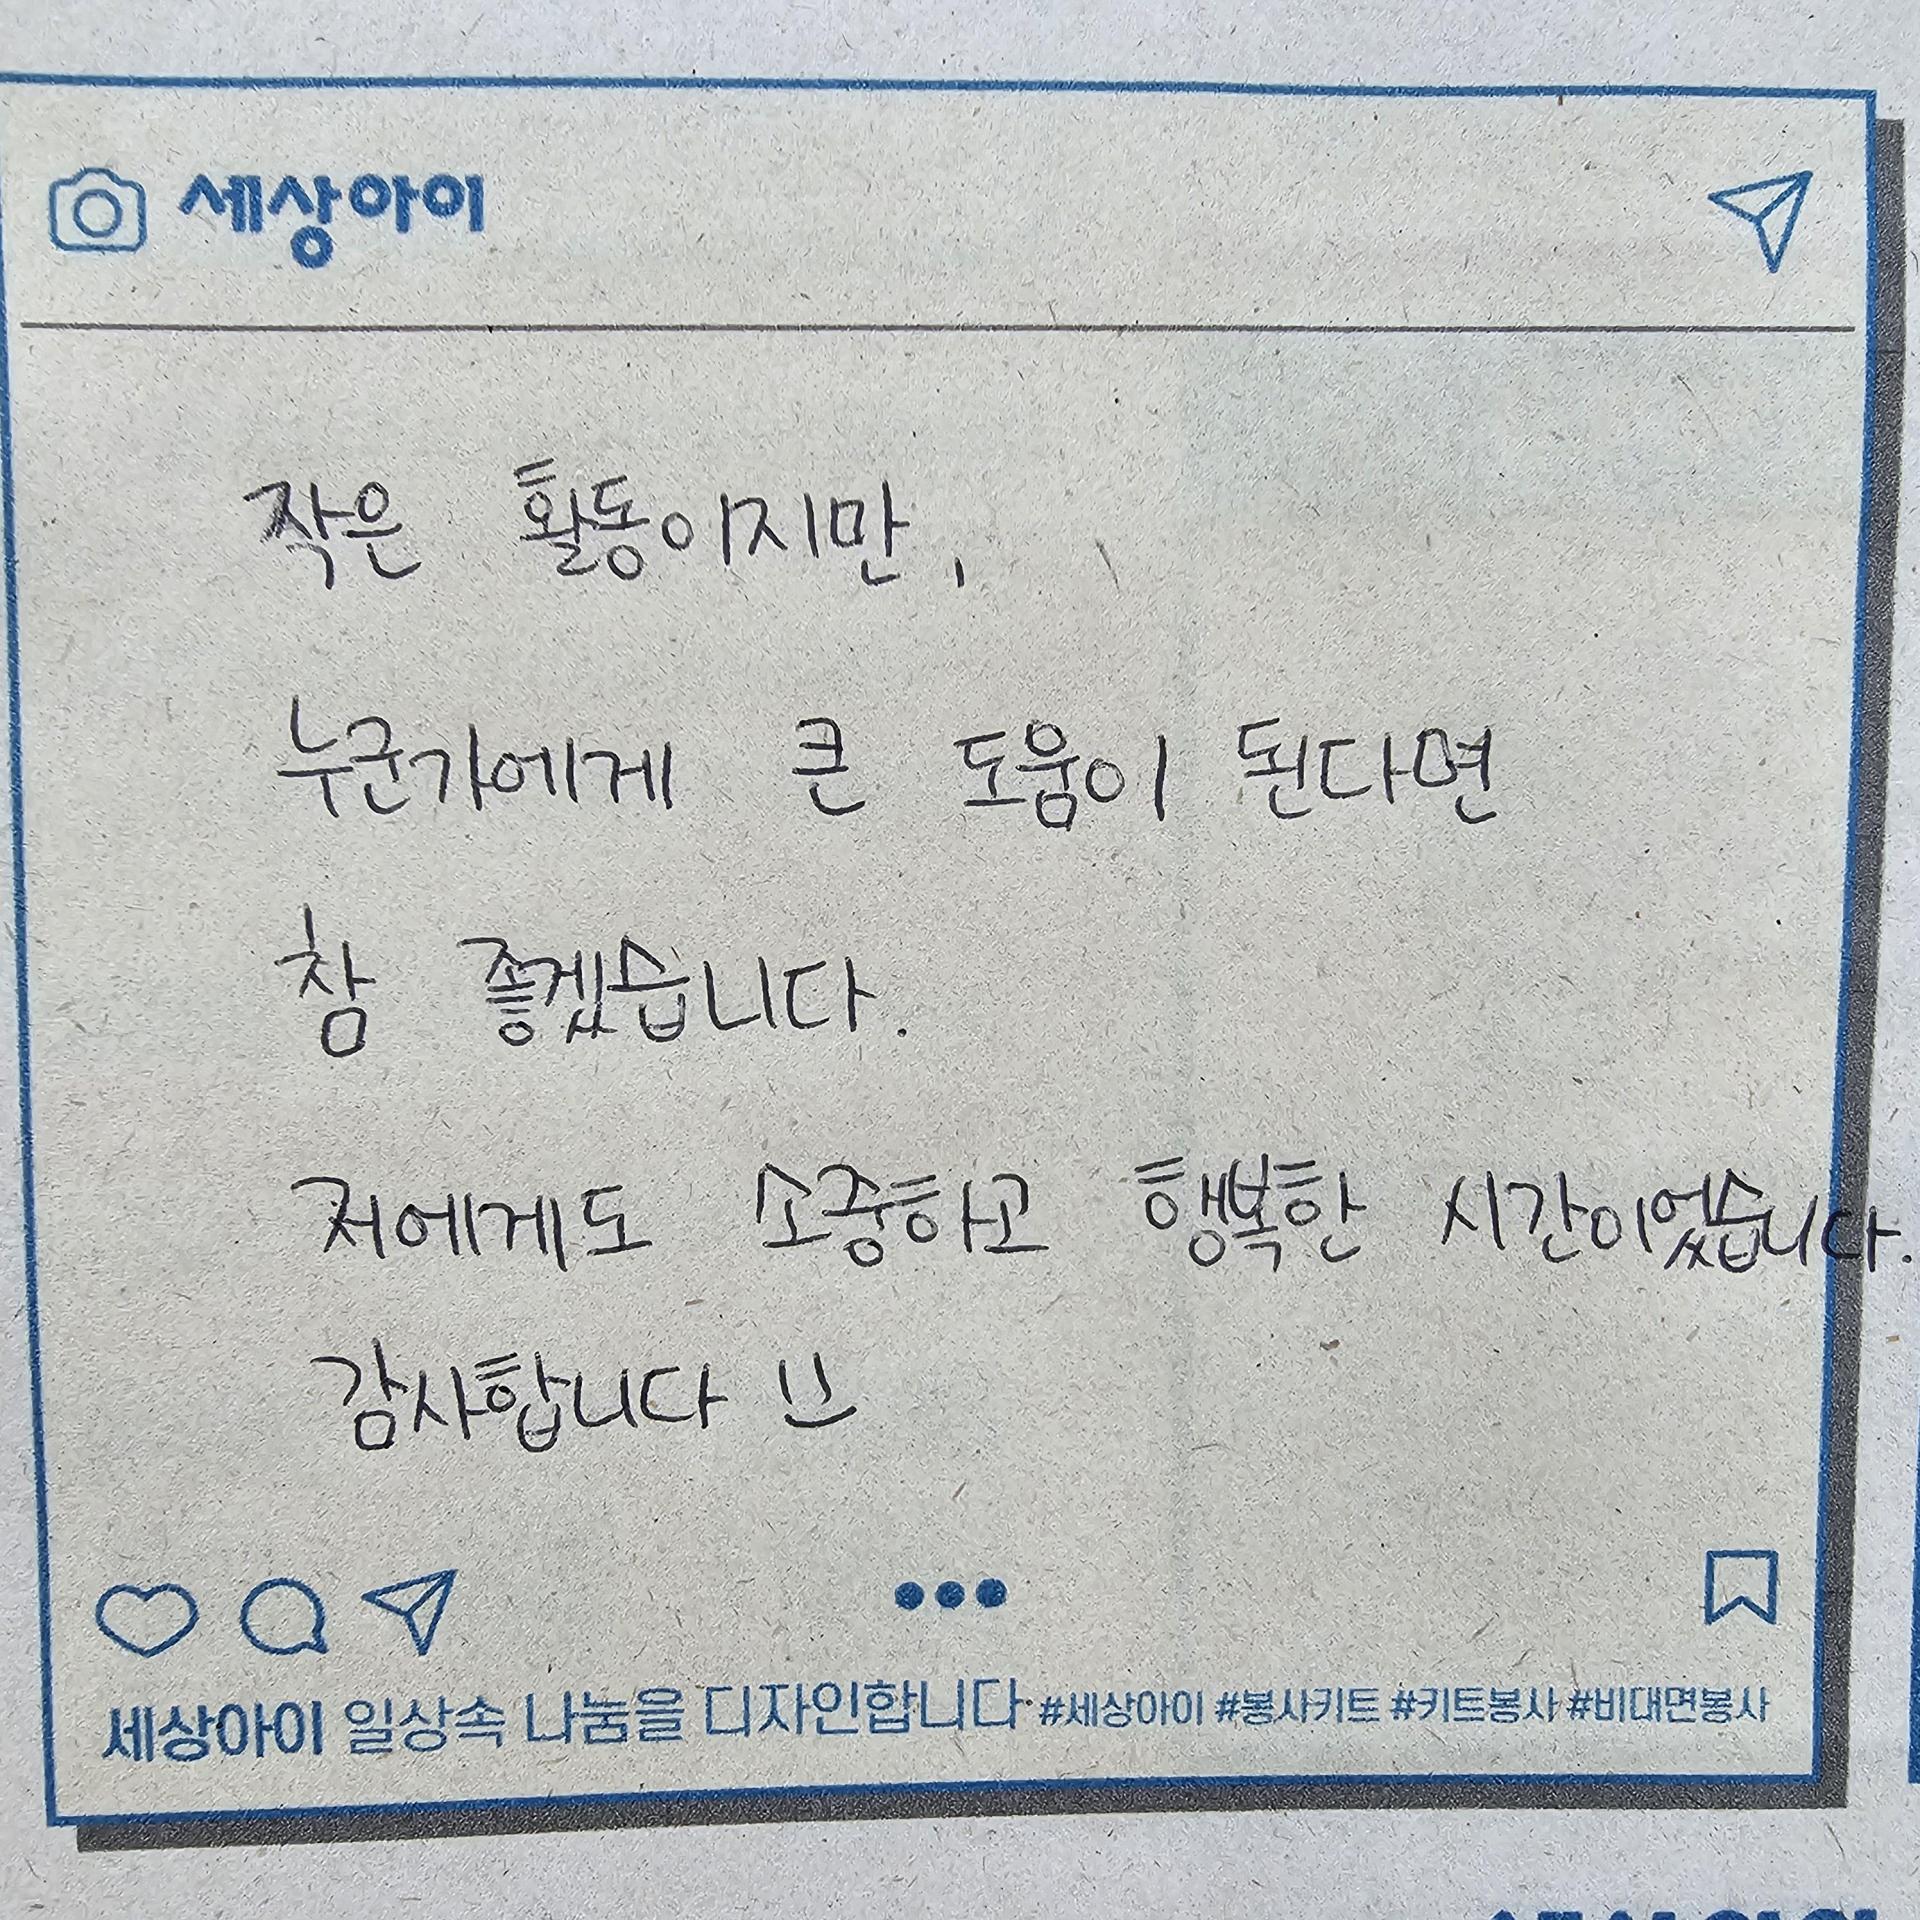 세상아이
작은 활동이지만,
누군가에게 큰 도움이 된다면
참 좋겠습니다.
저에게도 소중하고 행복한 시간이었습니다.
감사합니다
세상아이 일상속 나눔을 디자인합니다. #세상아이 #봉사키트 #키트봉사 #비대면봉사